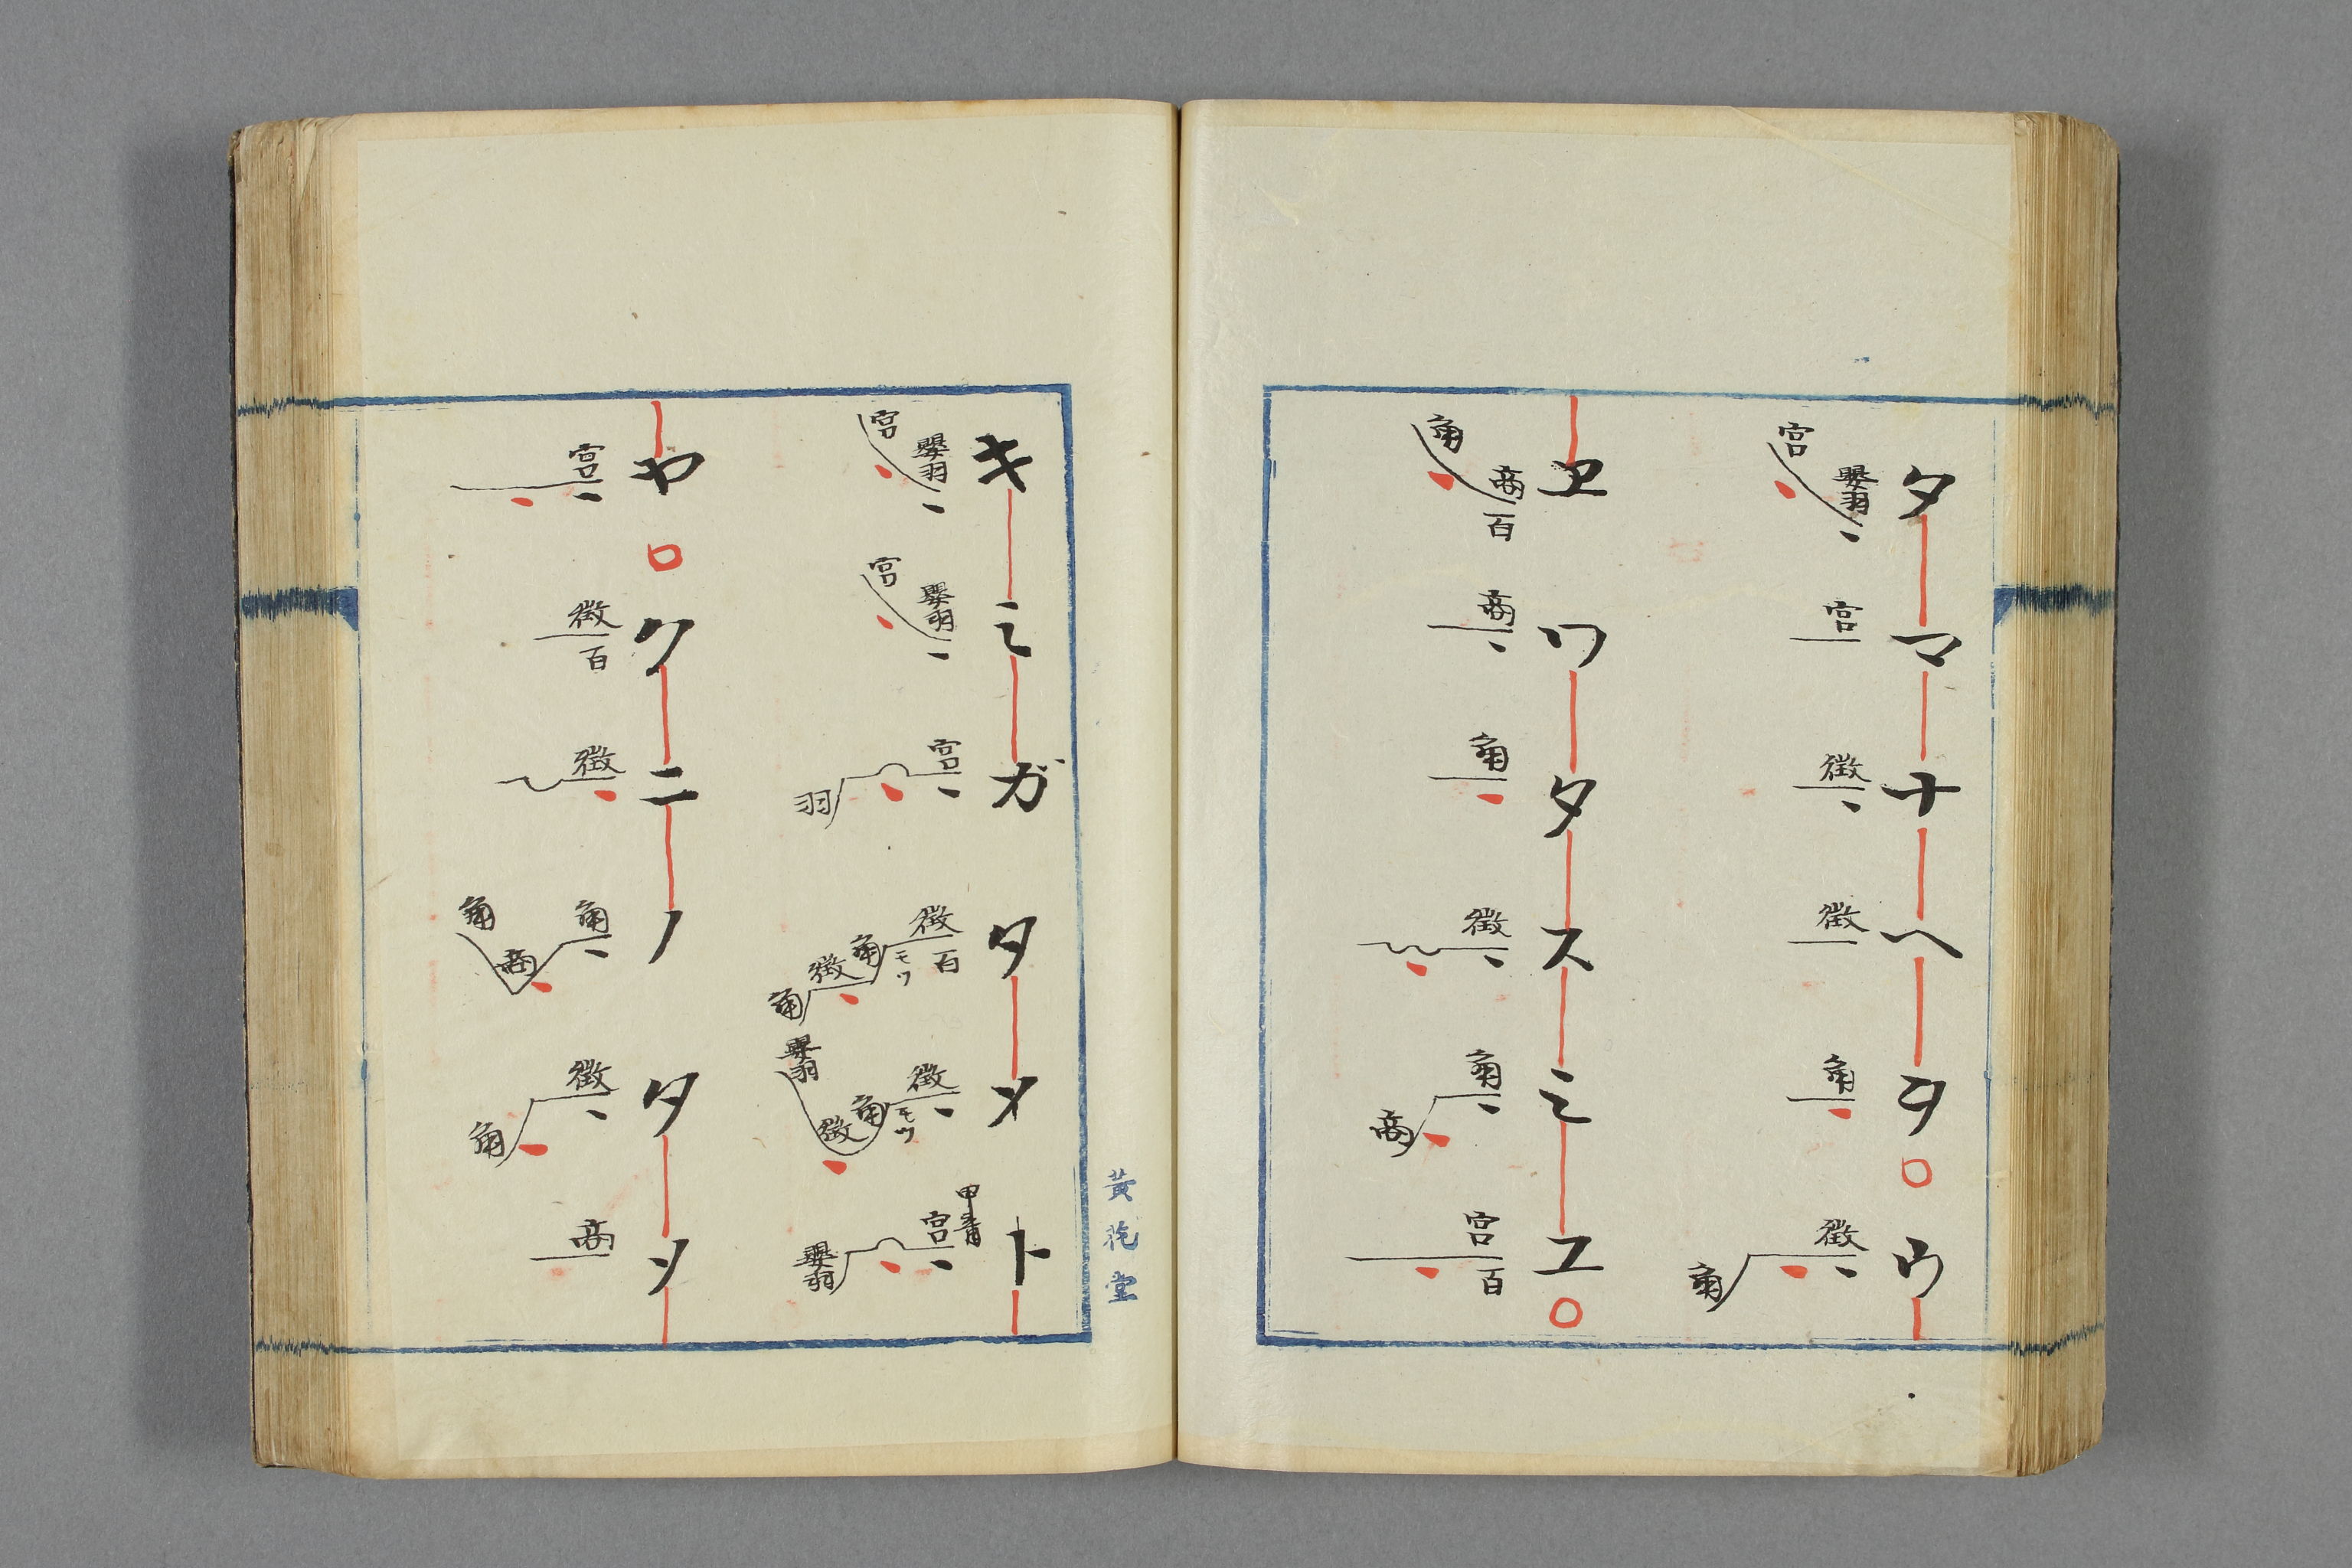 タマナヘヲ○ウ
嬰羽 宮 宮 徴 徴 角 徴 角
ヱワタスミユ○
商 百 角 商 角 徴 角 商 宮 百
キミガタメト
嬰羽 宮 嬰羽 宮 宮 羽 徴 百 モツ 角 徴 角 徴 モツ 角 徴 嬰羽 甲 宮 嬰羽
ヤ○クニノタメ
宮 徴 百 徴 角 商 角 徴 角 商
黄 堂